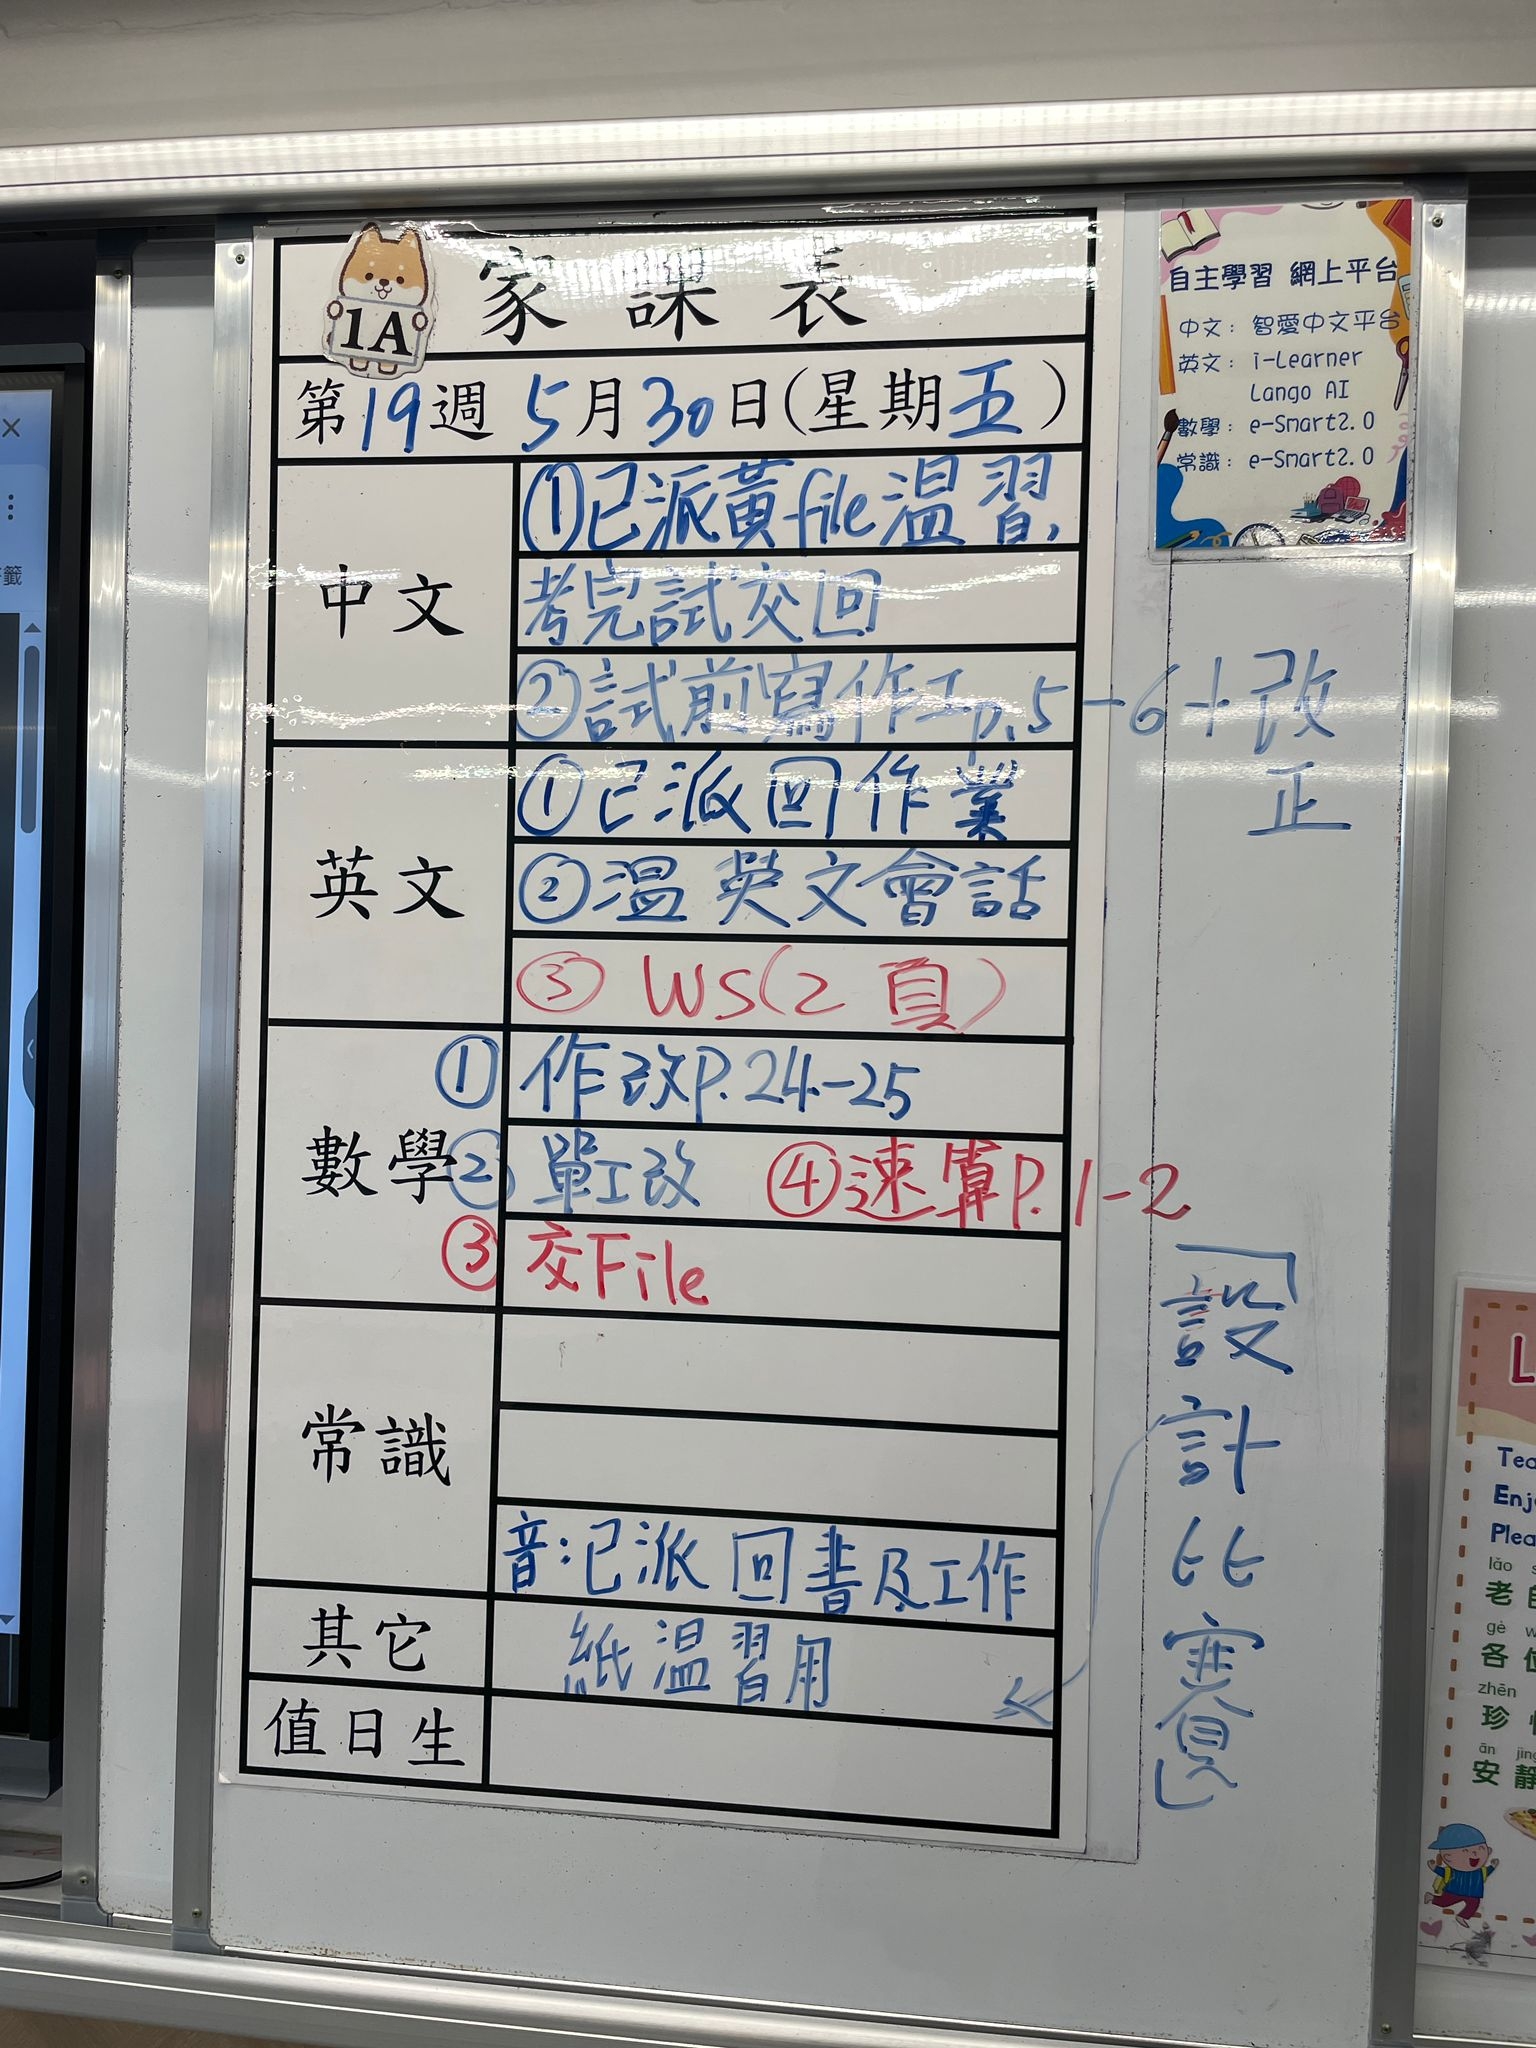 家課表
1A
第19週 5月30日(星期五)
中文
①已派黃file溫習,
考完試交回
②試前寫作工p.5-6+改正
英文
①已派回作業
②溫英文會話
③ WS(2頁)
數學
① 作改P.24-25
② 單工改 ④速算P.1-2
③ 交File
常識
音:已派回書及工作
紙溫習用
其它
「設計比賽」
值日生
自主學習 網上平台
中文: 智愛中文平台
英文: i-Learner
Lango AI
數學: e-Smart2.0
常識: e-Smart2.0
籤
L
Tea
Enj
Plea
lǎo
老
gè
各
zhēn
珍
ān jìng
安 靜